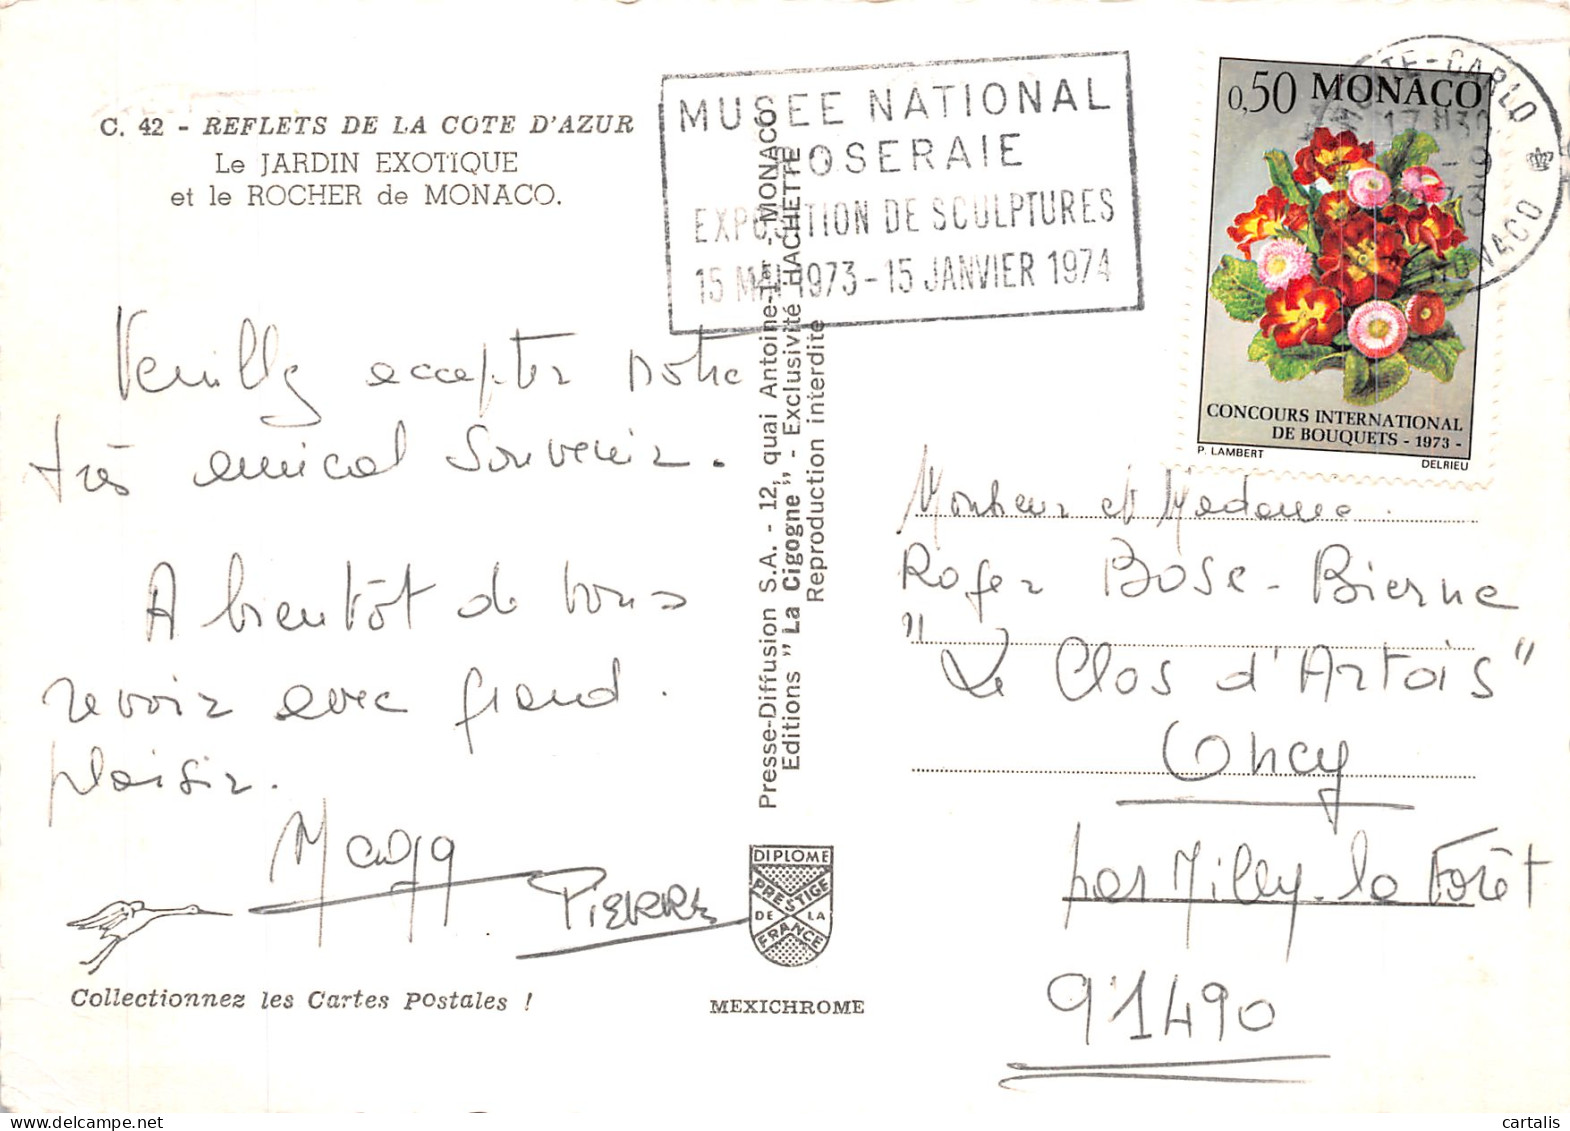 C. 42 - REFLETS DE LA COTE D'AZUR
Le JARDIN EXOTIQUE
et le ROCHER de MONACO.
MUSEE NATIONAL
ROSERAIE
EXPOSITION DE SCULPTURES
15 MAI 1973 - 15 JANVIER 1974
0,50 MONACO
CONCOURS INTERNATIONAL
DE BOUQUETS - 1973 -
P. LAMBERT DELRIEU
MONTE-CARLO
17H30
MONACO
Veuillez accepter notre
très amical souvenir.
A bientôt de vous
revoir avec grand
plaisir.
Maggy
PIERRE
Collectionnez les Cartes Postales !
Presse-Diffusion S.A. - 12, quai Antoine-1er - MONACO
Editions "La Cigogne" - Exclusivité HACHETTE
Reproduction interdite
DIPLOME
PRESTIGE
DE LA
FRANCE
MEXICHROME
Monsieur et Madame
Roger Bosc-Bierne
"Le Clos d'Artois"
Oncy
par Milly-la Forêt
91490
cartalis